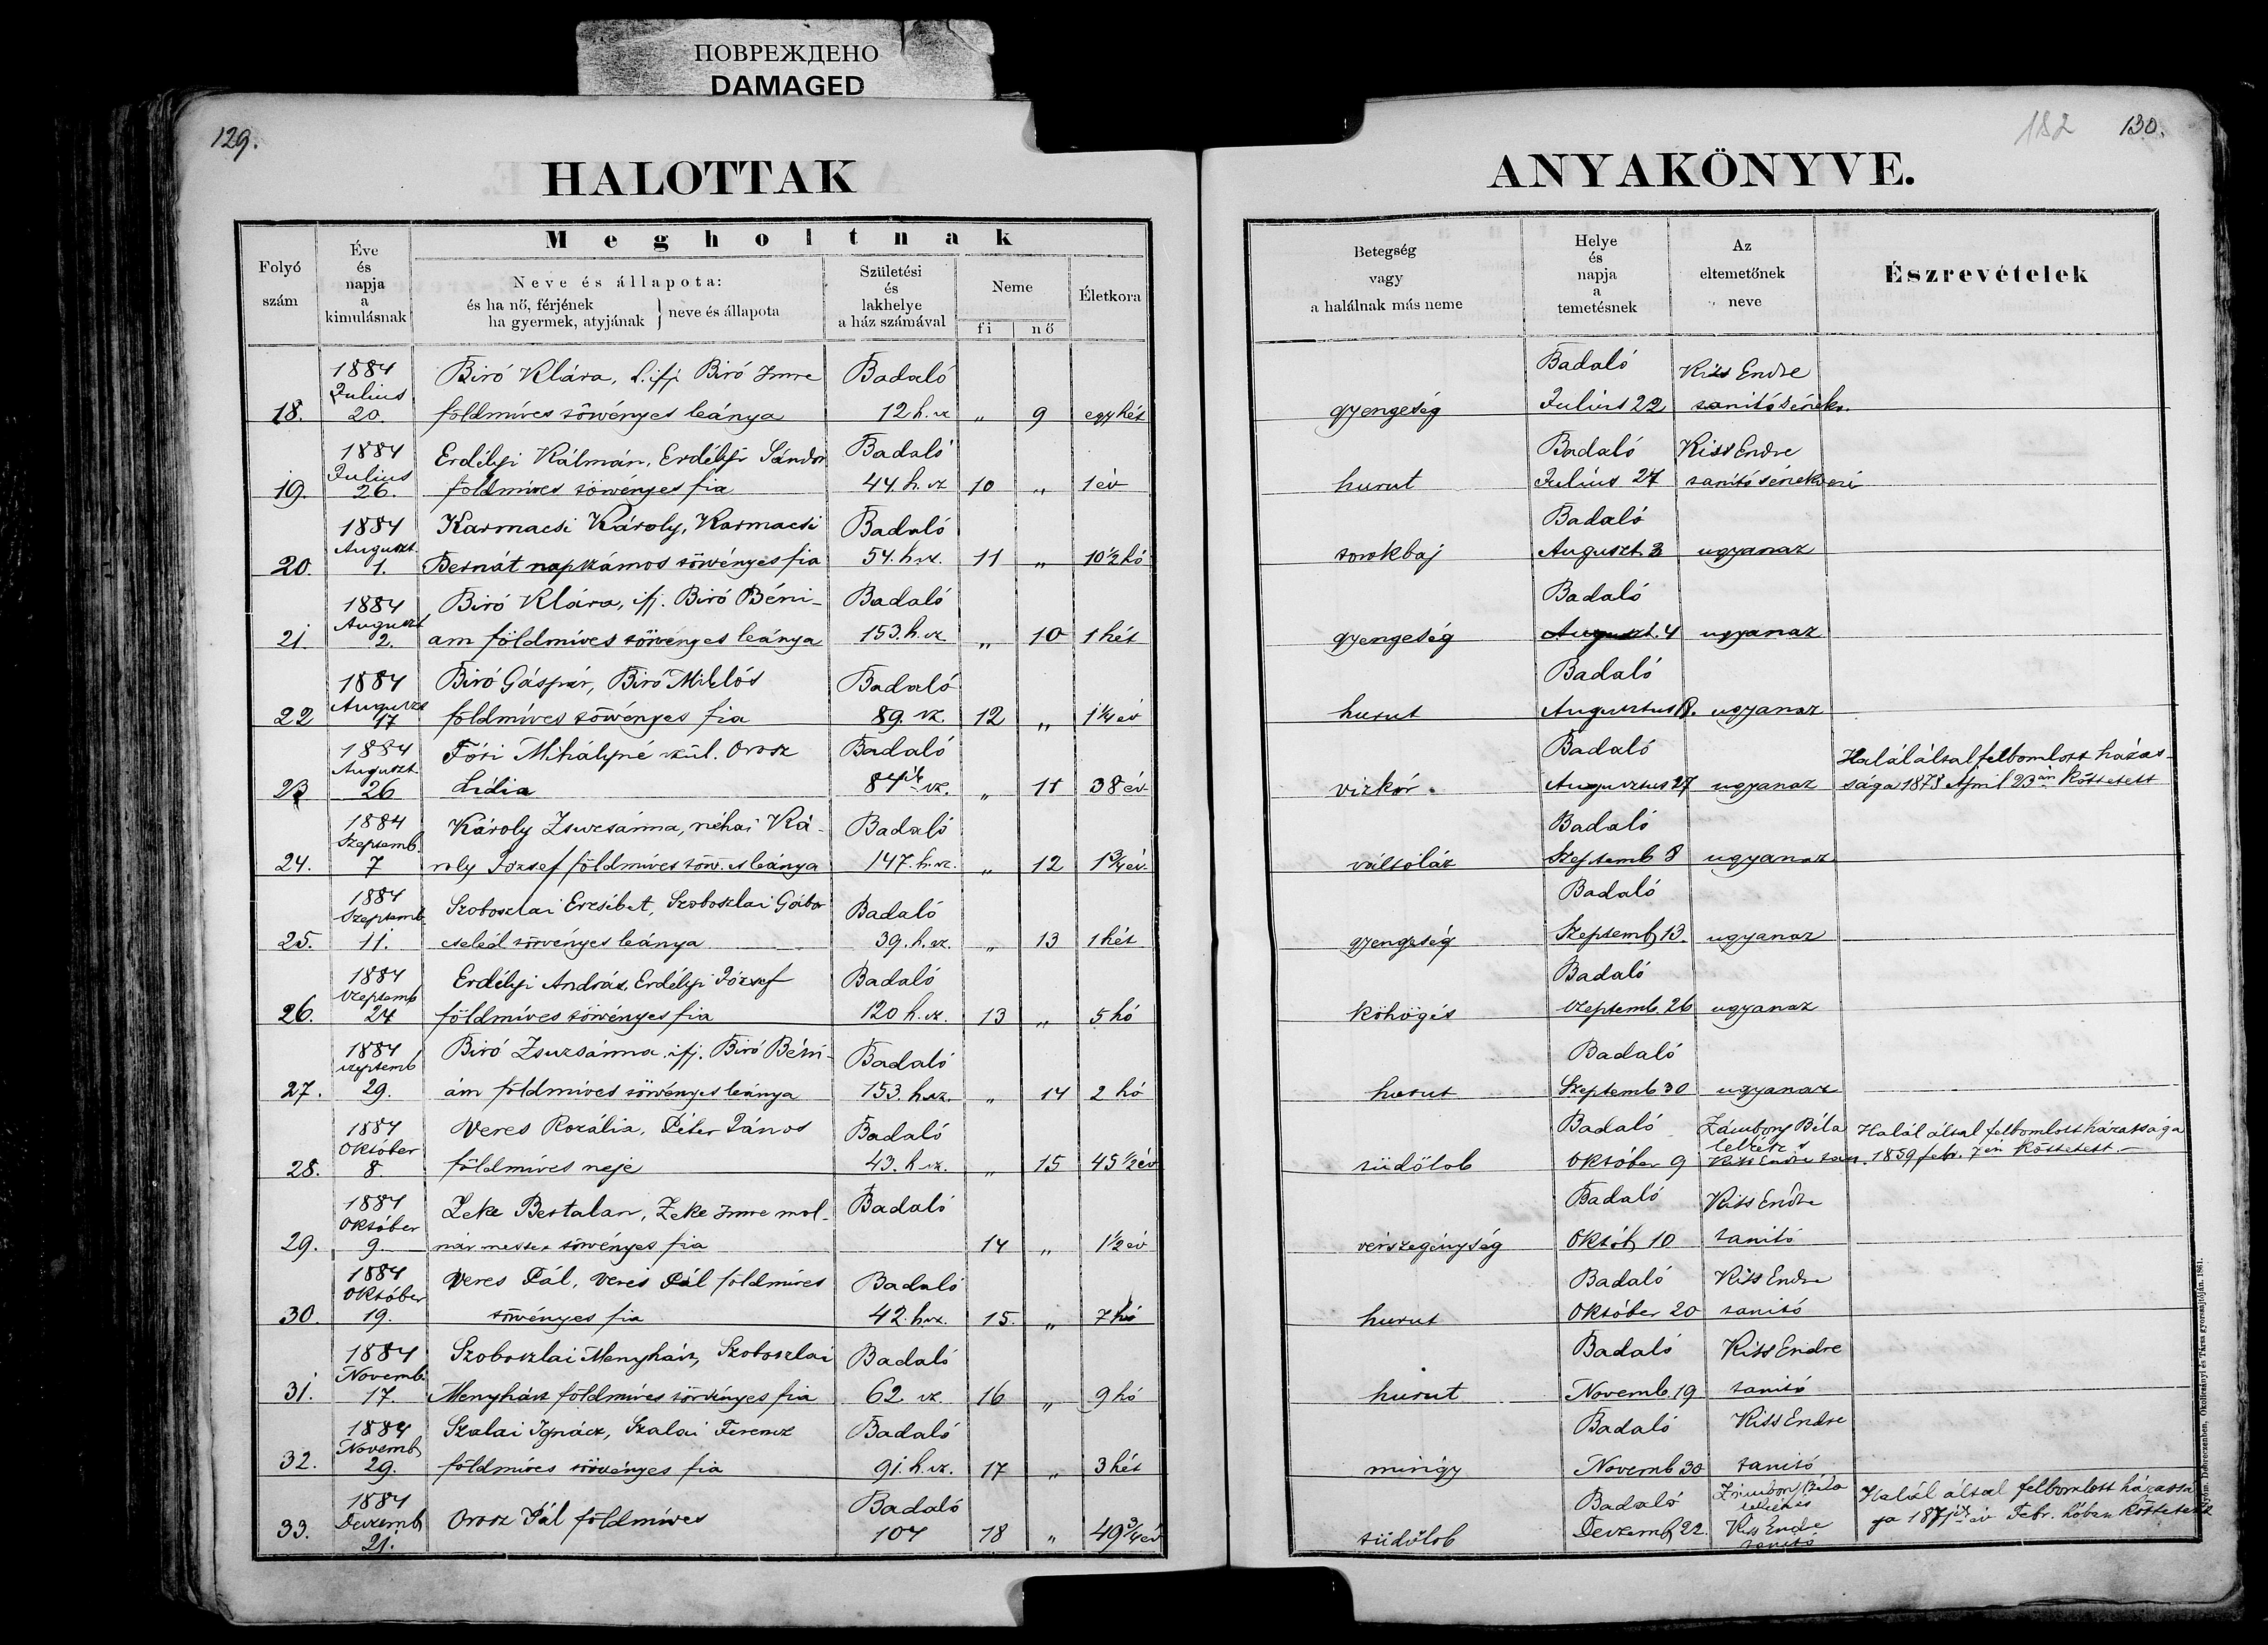 ПОВРЕЖДЕНО
DAMAGED
129.
HALOTTAK
Folyó szám
Éve és napja a kimulásnak
Megholtnak
Neve és állapota:
és ha nő, férjének
ha gyermek, atyjának } neve és állapota
Születési és lakhelye a ház számával
Neme
fi nő
Életkora
182 130.
ANYAKÖNYVE.
Betegség vagy a halálnak más neme
Helye és napja a temetésnek
Az eltemetőnek neve
Észrevételek
1884 Biró Klára, ifj Biró Imre Badaló Badaló Kiss Endre
Julius
18. 20. földmíves törvényes leánya 12 h. sz „ 9 egy hét gyengeség Július 22 tanító
1884 Erdélyi Kálmán, Erdélyi Sándor Badaló Badaló Kiss Endre
Julius
19. 26. földmíves törvényes fia 44. h. sz 10 „ 1 év hurut Július 27
1884 Karmacsi Károly, Karmacsi Badaló Badaló
Auguszt.
20. 1. Bernát napszámos törvényes fia 54. h. sz. 11 „ 10 1/2 hó torokbaj Auguszt. 3 ugyanaz
1884 Biró Klára, ifj. Biró Béni- Badaló Badaló
Auguszt
21. 2. am földmíves törvényes leánya 153. h. sz „ 10 1 hét gyengeség Auguszt. 4 ugyanaz
1884 Biró Gáspár, Biró Miklós Badaló Badaló
Auguszt
22 17 földmíves törvényes fia 89. sz 12 „ 1 1/4 év hurut Augusztus 18. ugyanaz
1884 Fóri Mihályné szül. Orosz Badaló Badaló Halál által felbomlott házas-
Auguszt.
23 26 Lidia 84ik sz. „ 11 38 év vizkór Augusztus 27 ugyanaz sága 1878 April 23án köttetett
1884 Károly Zsuzsánna, néhai Ká- Badaló Badaló
Szeptemb.
24. 7 roly József földmíves törv. es leánya 147. h. sz. „ 12 1 3/4 év. váltóláz Szeptemb 8 ugyanaz
1884 Szoboszlai Erzsébet, Szoboszlai Gábor Badaló Badaló
Szeptemb
25. 11. cseléd törvényes leánya 39. h. sz. „ 13 1 hét gyengeség Szeptemb 13. ugyanaz
1884 Erdélyi András, Erdélyi József Badaló Badaló
Szeptemb
26. 24 földmíves törvényes fia 120 h. sz. 13 „ 5 hó köhögés Szeptemb. 26 ugyanaz
1884 Biró Zsuzsánna ifj. Biró Béni- Badaló Badaló
Szeptemb
27. 29. ám földmíves törvényes leánya 153. h. sz. „ 14 2 hó hurut Szeptemb 30 ugyanaz
1884 Veres Rozália, Péter János Badaló Badaló Zámbory Béla Halál által felbomlott házassága
Október lelkész s
28. 8. földmíves neje 43. h. sz. „ 15 45 1/2 év tüdőlob Október 9 Kiss Endre tan. 1859 febr. 7én köttetett.
1884 Zeke Bertalan, Zeke Imre mol- Badaló Badaló Kiss Endre
Október
29. 9. nár mester törvényes fia 14 „ 1 1/2 év vérszegénység Októb 10 tanító
1884 Veres Pál, Veres Pál földmíves Badaló Badaló Kiss Endre
Október
30. 19. törvényes fia 42. h. sz. 15. „ 7 hó hurut Október 20 tanító
1884 Szoboszlai Menyhárt, Szoboszlai Badaló Badaló Kiss Endre
Novemb.
31. 17. Menyhárt földmíves törvényes fia 62 sz. 16 „ 9 hó hurut Novemb. 19 tanító
1884 Szalai Ignácz, Szalai Ferencz Badaló Badaló Kiss Endre
Novemb
32. 29. földmíves törvényes fia 91. h. sz. 17 „ 3 hét mirígy Novemb 30 tanító
1884 Badaló Badaló Zámbory Béla Halál által felbomlott házassá-
Deczemb Orosz Pál földmíves lelkész
33. 21. 104 18 „ 49 3/4 év tüdőlob Deczemb 22. Kiss Endre ga 1871 ik év Febr. hóban köttetett
tanító
Nyom. Debreczenben, Okolicsányi és Társa gyorssajtóján. 1861.